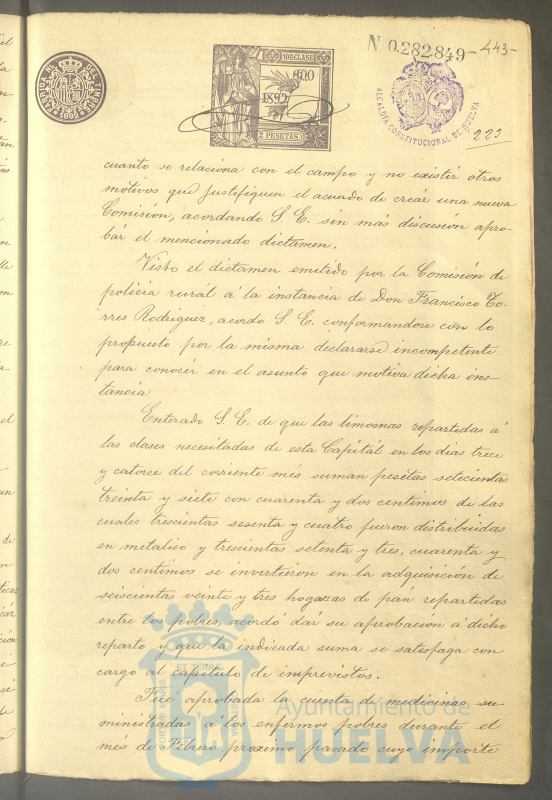 10ª CLASE
N 0.282.849 -443-
1892
2 PESETAS
ALCALDIA CONSTITUCIONAL DE HUELVA
223
cuanto se relaciona con el campo y no existir otros
motivos que justifiquen el acuerdo de crear una nueva
Comisión, acordando S. E. sin más discusión apro-
bár el mencionado dictamen.
Visto el dictámen emitido por la Comisión de
policia rurál á la instancia de Don Francisco To-
rres Rodriguez, acordó S. E. conformandose con lo
propuesto por la misma declararse incompetente
para conocer en el asunto que motiva dicha ins-
tancia
Enterado S. E. de que las limosnas repartidas á
las clases necesitadas de esta Capitál en los dias trece
y catorce del corriente més suman pesetas setecientas
treinta y siete con cuarenta y dos centimos de las
cuales trescientas sesenta y cuatro fueron distribuidas
en metalico y trescientas setenta y tres, cuarenta y
dos centimos se invirtieron en la adquisición de
seiscientas veinte y tres hogazas de pán repartidas
entre los pobres, acordó dár su aprobacion á dicho
reparto y que la indicada suma se satisfaga con
cargo al capitulo de imprevistos.
Fué aprobada la cuenta de medicinas su-
ministradas á los enfermos pobres durante el
més de Febrero proximo pasado cuyo importe
Ayuntamiento de
HUELVA